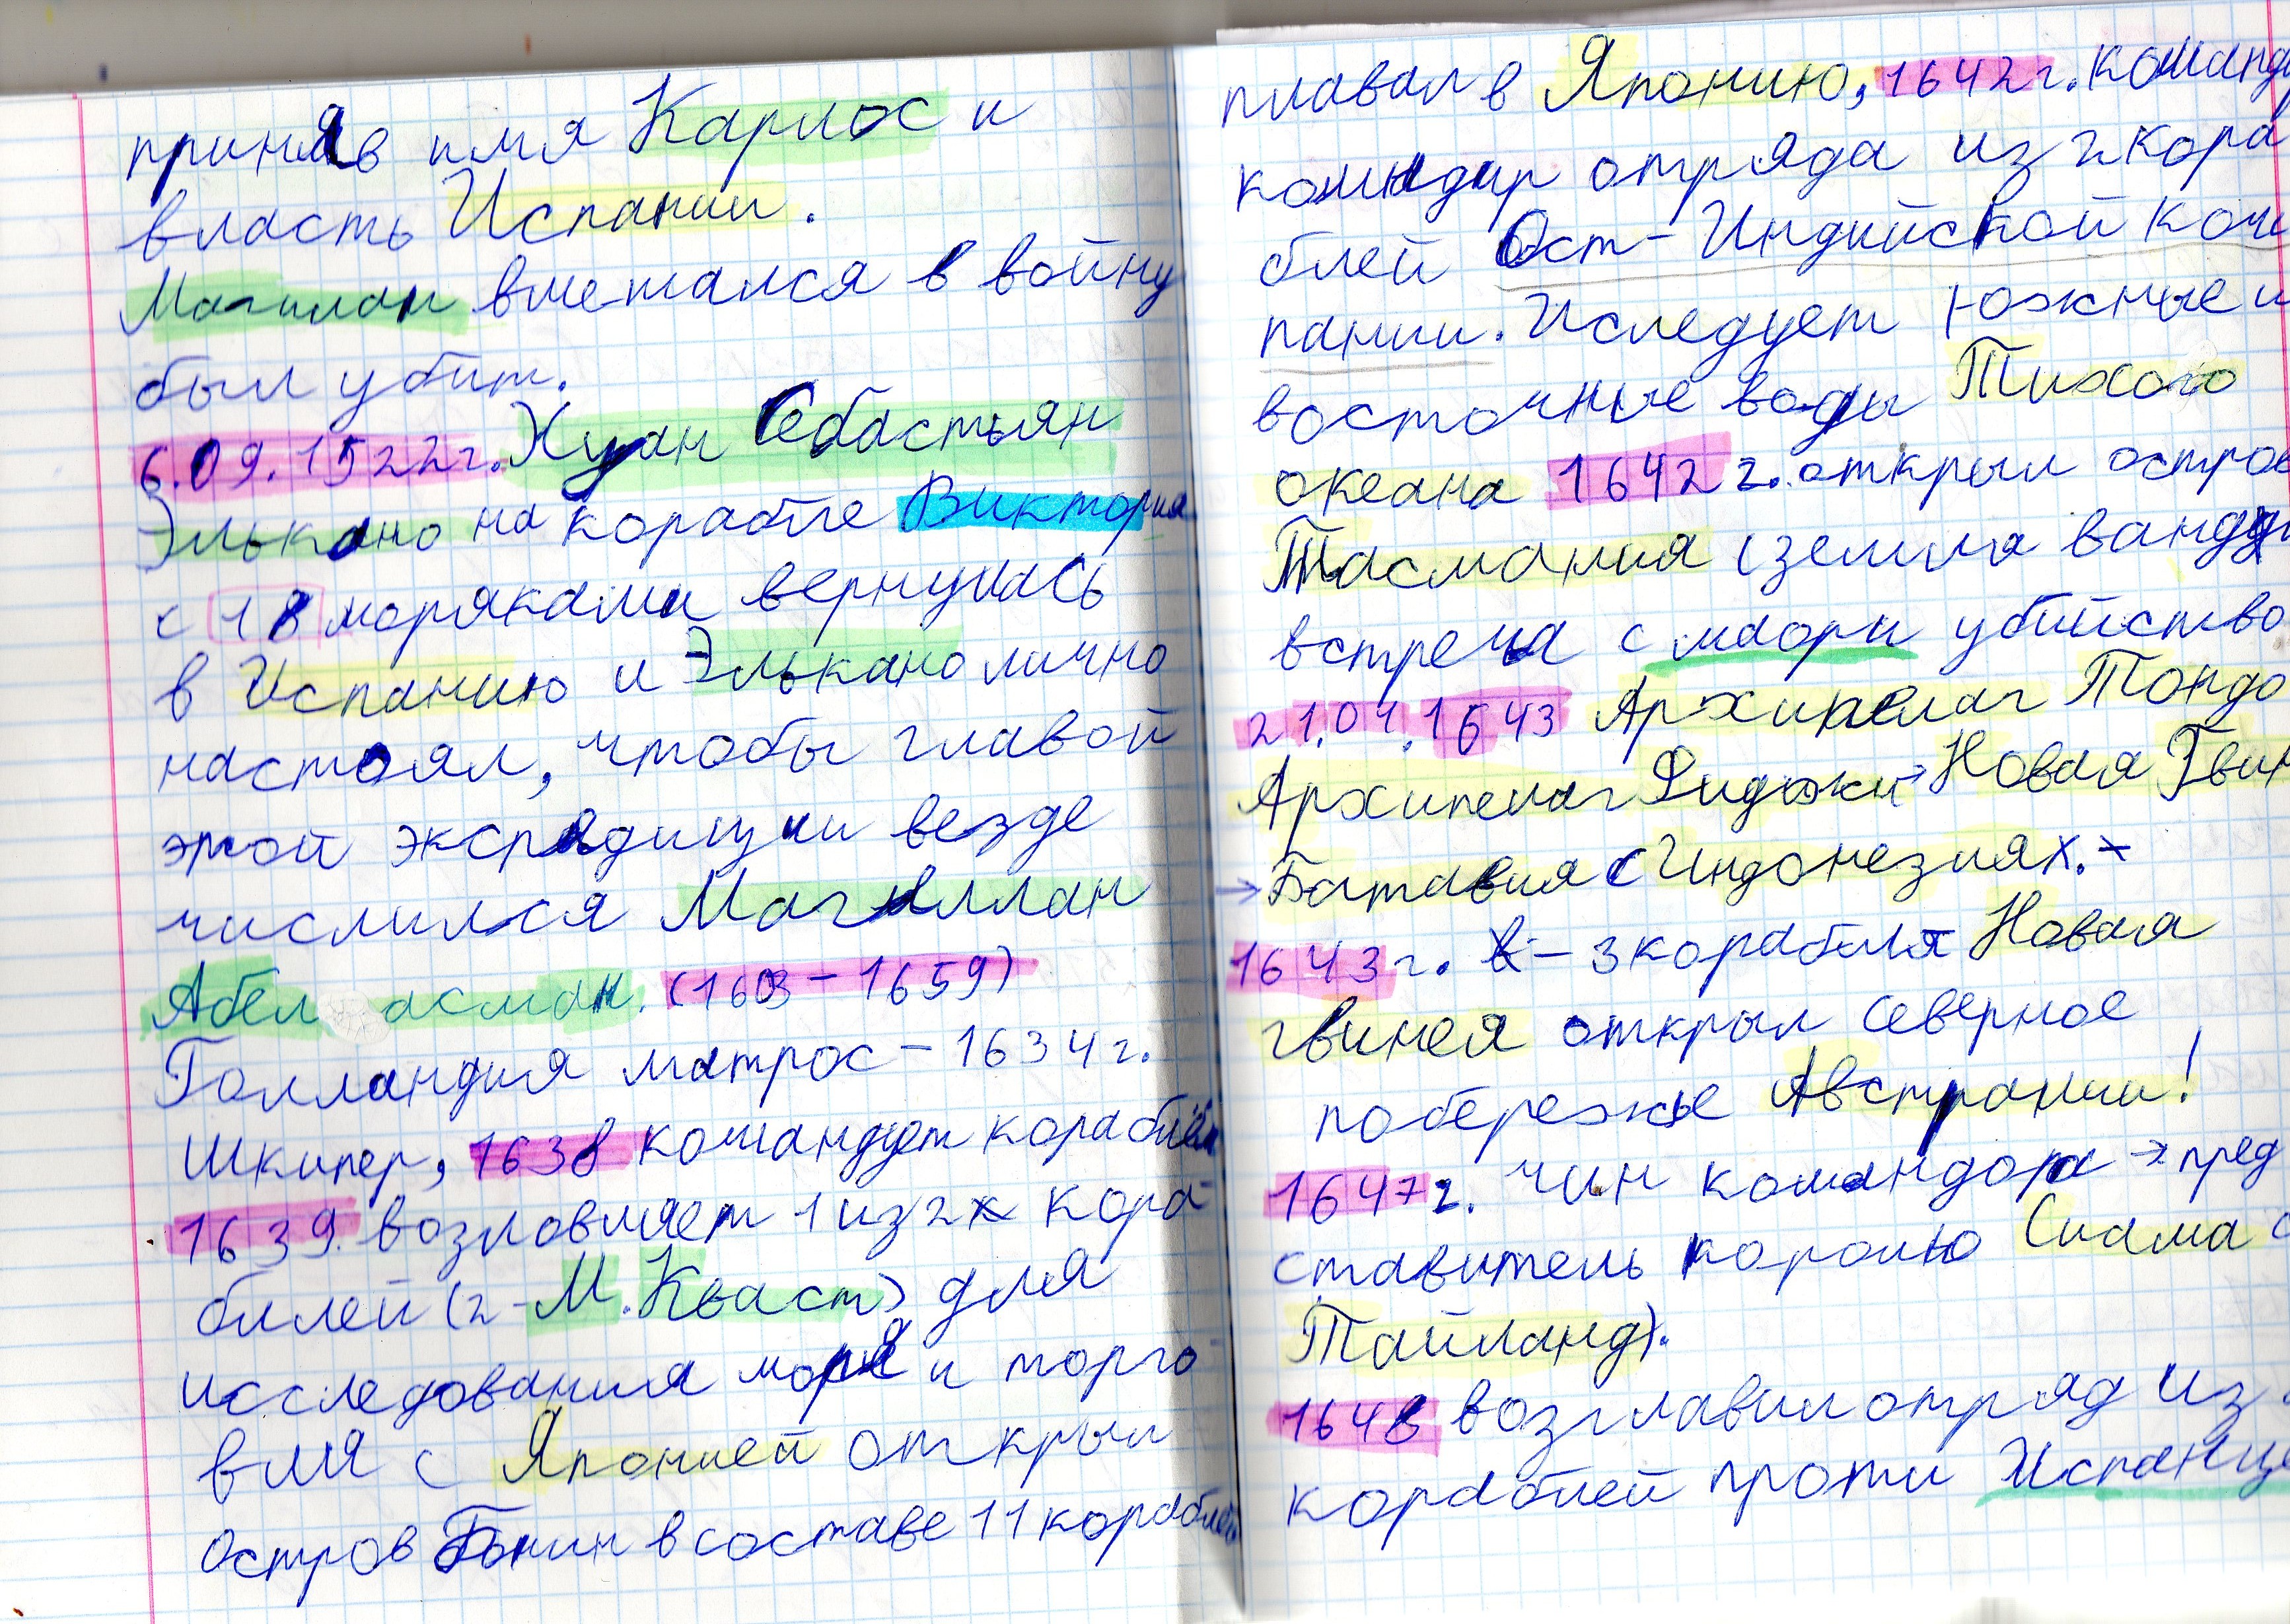 приняв имя Карлос и
власть Испании.
Магилан вмешался в войну
был убит.
6.09.1522г. Хуан Себастьян
Элькано на корабле Виктория
с 18 моряками вернулась
в Испанию и Элькано лично
настоял, чтобы главой
этой экспедиции везде
числился Магеллан
Абел асман. (1603-1659)
Голландия матрос - 1634г.
Шкипер, 1638 командует кораблём
1639. возловляет 1 из 2х кора-
блей (2-М.Кваст) для
исследования моря и торго-
вля с Японией открыл
остров Бонин в составе 11 кораблей
плавал в Японию, 1642г. команди
командир отряда из 2 кора
блей Ост-Индийской ком
пании. Иследует южные и
восточные воды Тихого
океана 1642г. открыл остров
Тасмания (земля ванд
встреча с маори убийство
21.01.1643 Архипелаг Тондо
Архипелаг Фиджи → Новая Гвин
→ Батавия (Индонезия).
1643г. - 3 корабля Новая
гвинея открыл северное
побережье Австралии!
1647г. чин командора → пред
ставитель королю Сиама с
Тайланд).
1648 возглавил отряд из
кораблей проти Испанце